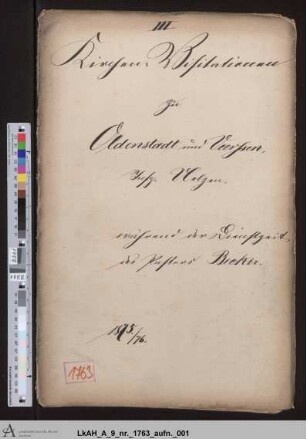 III
Kirchen-Visitationen
zu
Oldenstadt und Veerßen,
Insp. Uelzen,
während der Dienstzeit
des Pastors Becker.
1875/76.
1763
LkAH_A_9_nr._1763_aufn._001